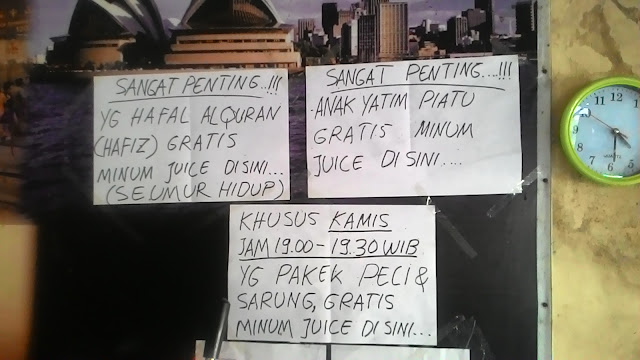 SANGAT PENTING..!!!
YG HAFAL ALQURAN
(HAFIZ) GRATIS
MINUM JUICE DISINI...
(SEUMUR HIDUP)
SANGAT PENTING....!!!
ANAK YATIM PIATU
GRATIS MINUM
JUICE DISINI....
KHUSUS KAMIS
JAM 19.00 - 19.30 WIB
YG PAKEK PECI &
SARUNG, GRATIS
MINUM JUICE DISINI...